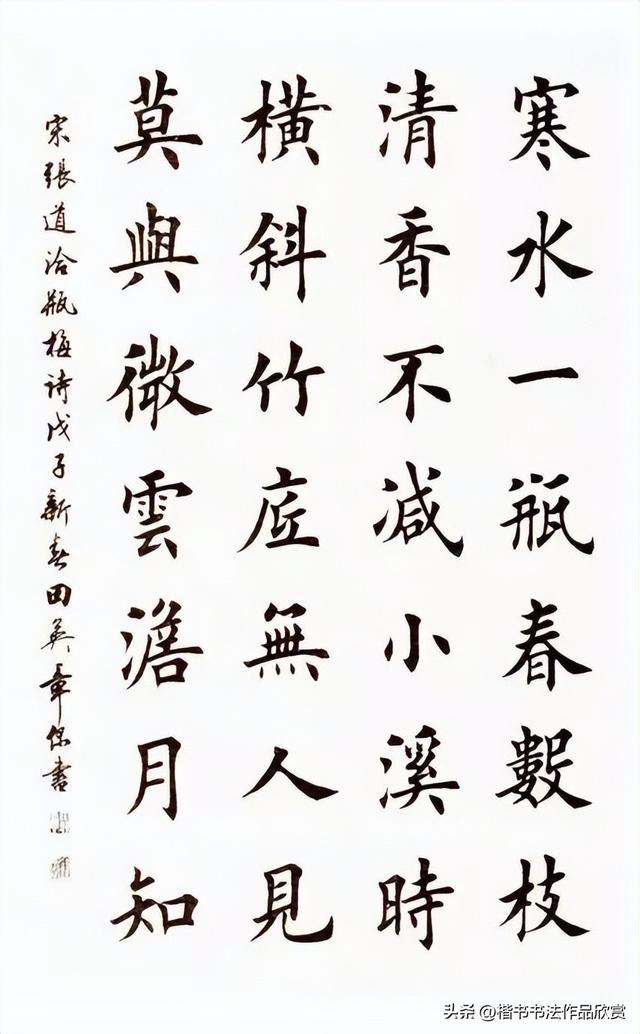 寒水一瓶春數枝
清香不減小溪時
橫斜竹底無人見
莫與微雲澹月知
宋張道洽瓶梅詩戊子新春田英章書
头条 @楷书书法作品欣赏